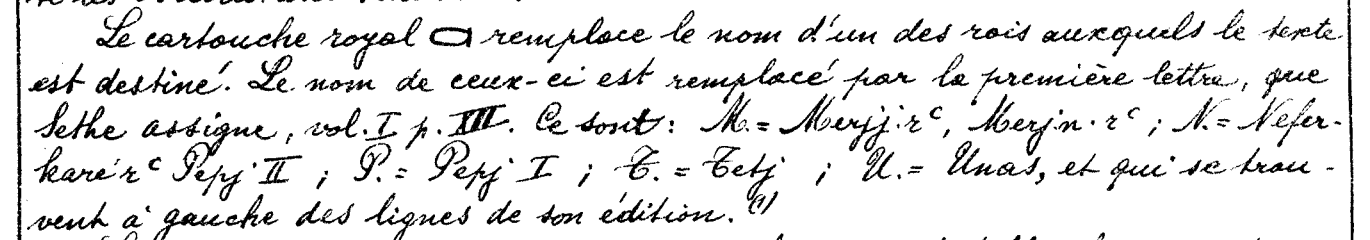 Le cartouche royal remplace le nom d'un des rois auxquels le texte
est destiné. Le nom de ceux-ci est remplacé par la première lettre, que
Sethe assigne, vol. I p. XIII. Ce sont: M. = Merjj·rᶜ, Merjn·rᶜ ; N. = Nefer-
karé rᶜ Pepj II ; P. = Pepj I ; T. = Tetj ; U. = Unas, et qui se trou-
vent à gauche des lignes de son édition. (1)